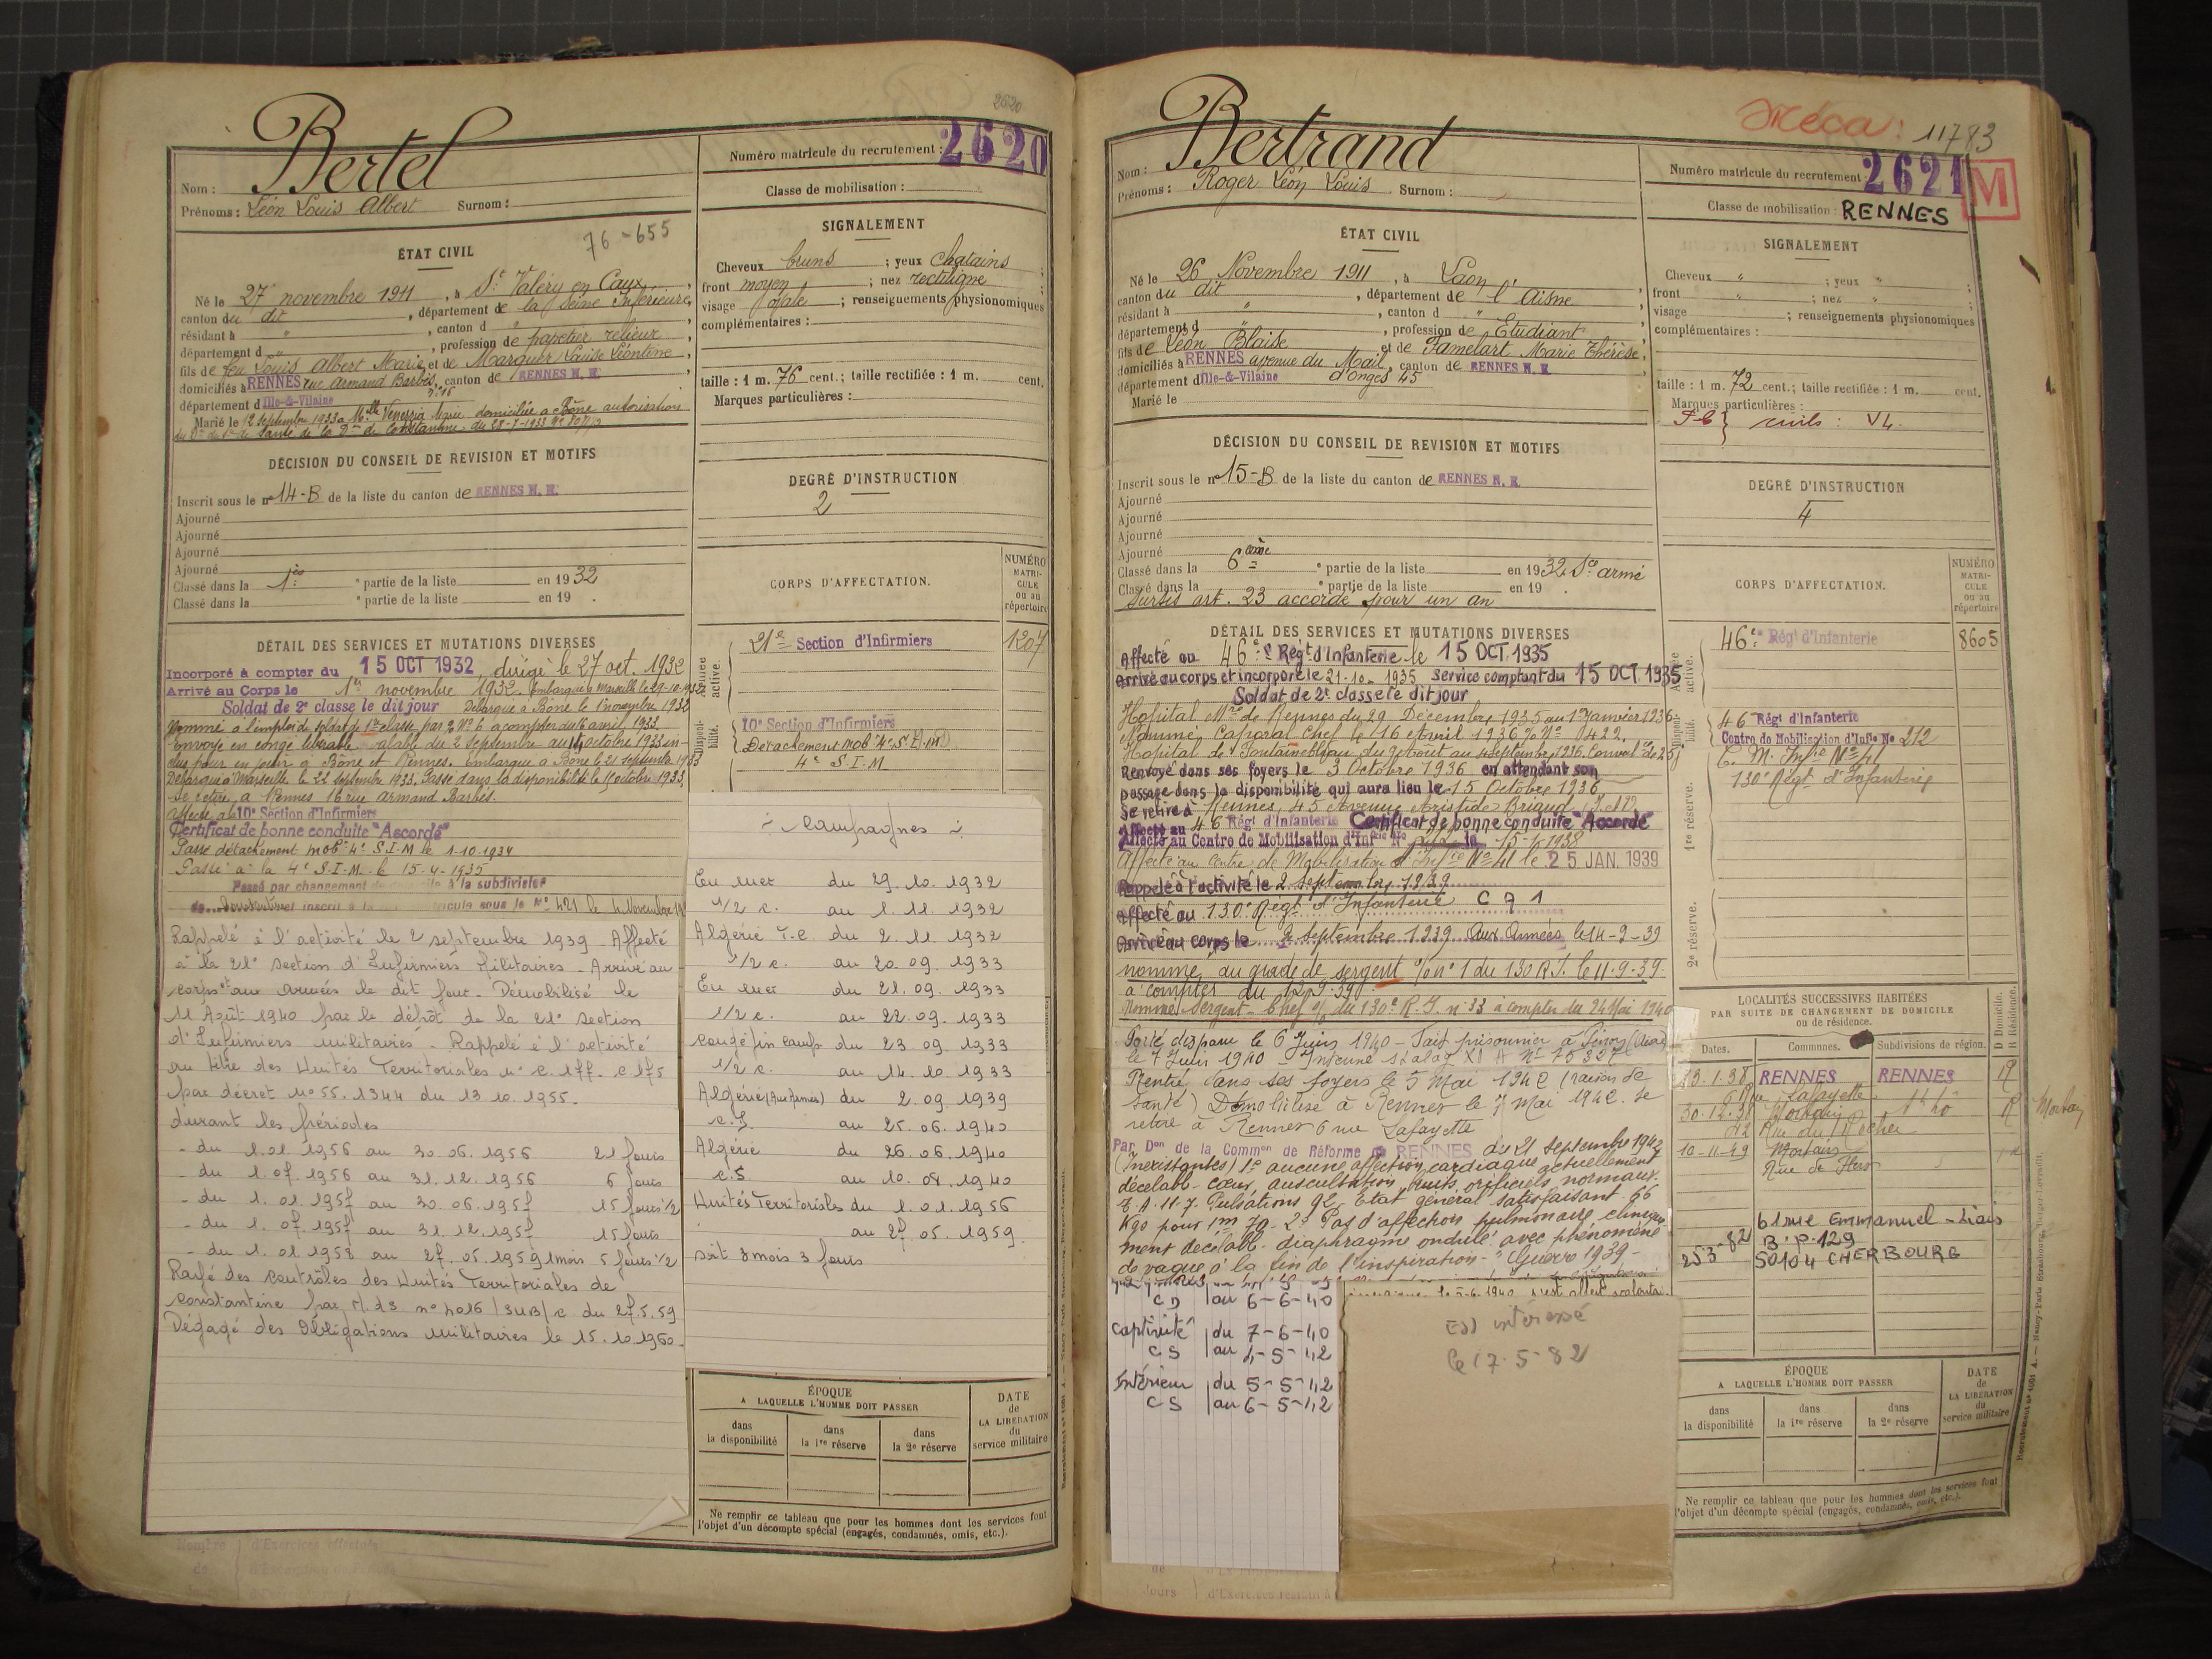 2620
Bertel
Nom :
Prénoms : Léon Louis Albert Surnom :
Numéro matricule du recrutement : 2620
Classe de mobilisation :
ÉTAT CIVIL
76-655
Né le 27 novembre 1911, à St Valéry en Caux,
canton du dit, département de la Seine Inférieure,
résidant à ", canton d "
département d ", profession de papetier relieur,
fils de feu Louis Albert Marie et de Marquer Louise Léontine,
domiciliés à RENNES rue Armand Barbès, canton de RENNES N.E.
n° 16
département d Ille-&-Vilaine
Marié le 12 septembre 1933 à Mlle Venezia Marie domiciliée à Bône autorisation
du Dr du Sce de Santé de la Don de Constantine du 28-7-1933
SIGNALEMENT
Cheveux bruns ; yeux chatains ;
front moyen ; nez rectiligne ;
visage ovale ; renseignements physionomiques
complémentaires :
taille : 1 m. 76 cent. ; taille rectifiée : 1 m. cent.
Marques particulières :
DÉCISION DU CONSEIL DE REVISION ET MOTIFS
Inscrit sous le n° 14-B de la liste du canton de RENNES N.E.
Ajourné
Ajourné
Ajourné
Ajourné
Classé dans la 1re partie de la liste en 1932
Classé dans la partie de la liste en 19 .
DEGRÉ D'INSTRUCTION
2
CORPS D'AFFECTATION.
NUMÉRO MATRICULE ou au répertoire
21e Section d'Infirmiers 1207
Armée active.
Disponibilité.
10e Section d'Infirmiers
Détachement mob 4e S.I.M
4e S.I.M
DÉTAIL DES SERVICES ET MUTATIONS DIVERSES
Incorporé à compter du 15 OCT 1932, dirigé le 27 oct. 1932
Arrivé au Corps le 1er novembre 1932. Embarqué à Marseille le 29-10-1932
Soldat de 2e classe le dit jour Débarqué à Bône le 1 novembre 1932
Nommé à l'emploi de soldat de 1re classe par O. N° 6 à compter du 16 avril 1933
Envoyé en congé libérable valable du 2 septembre au 14 octobre 1933 in-
clus pour en jouir à Bône et Rennes. Embarqué à Bône le 21 septembre 1933
Débarqué à Marseille le 22 septembre 1933. Passé dans la disponibilité le 15 octobre 1933.
Se retire à Rennes 16 rue Armand Barbès.
Affecté à la 10e Section d'Infirmiers
Certificat de bonne conduite "Accordé"
Passé détachement mob 4e S.I.M le 1-10-1934
Passé à la 4e S.I.M. le 15-4-1935
Passé par changement de domicile à la subdivision
de Constantine et inscrit à la matricule sous le N° 421 le 4 Novembre
Rappelé à l'activité le 2 septembre 1939 - Affecté
à la 21e section d'Infirmiers Militaires - Arrivé au
corps et aux armées le dit jour - Démobilisé le
11 Août 1940 par le dépôt de la 21e section
d'Infirmiers militaires - Rappelé à l'activité
au titre des Unités Territoriales n° C. 177 - C 175
par décret n° 55.1344 du 13 10.1955 -
durant les périodes
- du 1.01 1956 au 30.06.1956 21 jours
- du 1.07 1956 au 31.12.1956 6 jours
- du 1.01.1957 au 30.06.1957 15 jours 1/2
- du 1.07.1957 au 31.12.1957 15 jours
- du 1.01.1958 au 27.05.1959 1 mois 5 jours 1/2
Rayé des contrôles des Unités Territoriales de
Constantine par M.D3 n° 4016/SUB/C du 27.5.59
Dégagé des Obligations militaires le 15.10.1960 -
Campagnes
En mer du 29.10.1932
1/2 c. au 1.11.1932
Algérie T.C. du 2.11.1932
1/2 c. au 20.09.1933
En mer du 21.09.1933
1/2 c. au 22.09.1933
congé fin camp. du 23.09.1933
1/2 c. au 14.10.1933
Algérie (Aux Armées) du 2.09.1939
c.S au 25.06.1940
Algérie du 26.06.1940
c.S au 10.08.1940
Unités Territoriales du 1.01.1956
au 27.05.1959
soit 3 mois 3 jours
ÉPOQUE
A LAQUELLE L'HOMME DOIT PASSER
dans la disponibilité
dans la 1re réserve
dans la 2e réserve
DATE de LA LIBÉRATION du service militaire
Ne remplir ce tableau que pour les hommes dont les services font
l'objet d'un décompte spécial (engagés, condamnés, omis, etc.).
Méca : 11783
Bertrand
Nom :
Prénoms : Roger Léon Louis Surnom :
Numéro matricule du recrutement : 2621 M
Classe de mobilisation : RENNES
ÉTAT CIVIL
Né le 26 Novembre 1911, à Laon,
canton du dit, département de l'Aisne,
résidant à ", canton d "
département d ", profession de Etudiant,
fils de Léon Blaise et de Famelart Marie Thérèse,
domiciliés à RENNES avenue du Mail, canton de RENNES N.E.
département d Ille-&-Vilaine d'Onges 45
Marié le
SIGNALEMENT
Cheveux " ; yeux " ;
front " ; nez " ;
visage ; renseignements physionomiques
complémentaires :
taille : 1 m. 72 cent. ; taille rectifiée : 1 m. cent.
Marques particulières :
civils : VL.
DÉCISION DU CONSEIL DE REVISION ET MOTIFS
Inscrit sous le n° 15-B de la liste du canton de RENNES N.E.
Ajourné
Ajourné
Ajourné
Ajourné
Classé dans la 6ème partie de la liste en 1932 Sce armé
Classé dans la partie de la liste en 19 .
Sursis art. 23 accordé pour un an
DEGRÉ D'INSTRUCTION
4
CORPS D'AFFECTATION.
NUMÉRO MATRICULE ou au répertoire
46e Régt d'Infanterie 8605
Armée active.
Disponibilité.
46 Régt d'Infanterie
Centre de Mobilisation d'Inf. No 212
C. M. Infie No 41
130e Régt d'Infanterie
1re réserve.
2e réserve.
DÉTAIL DES SERVICES ET MUTATIONS DIVERSES
Affecté au 46e Régt d'Infanterie le 15 OCT 1935
Arrivé au corps et incorporé le 21-10-1935 Service comptant du 15 OCT 1935
Soldat de 2e classe le dit jour
Hôpital Mre de Rennes du 29 Décembre 1935 au 1er Janvier 1936
Nommé Caporal Chef le 16 Avril 1936 N° 0422.
Hôpital de Fontainebleau du 9 Août au 4 septembre 1936. Conval. de 25 j
Renvoyé dans ses foyers le 3 Octobre 1936 en attendant son
passage dans la disponibilité qui aura lieu le 15 Octobre 1936
Se retire à Rennes, 45 Avenue Aristide Briand
Affecté au 46 Régt d'Infanterie Certificat de bonne conduite "Accordé"
Affecté au Centre de Mobilisation d'Infie No 212 le 15-4-1938
Affecté au Centre de Mobilisation d'Infie No 41 le 25 JAN. 1939
Rappelé à l'activité le 2 septembre 1939
Affecté au 130e Régt d'Infanterie C A 1
Arrivé au corps le 2 septembre 1939 Aux Armées le 14-9-39
nommé au grade de sergent n° 1 du 130 R.I. le 11-9-39.
à compter du 12-9-39
Nommé Sergent-Chef du 130e R.I. n° 33 à compter du 24 Mai 1940
Porté disparu le 6 Juin 1940 - Fait prisonnier à
le 7 Juin 1940 - Interné Stalag XI A N° 75327
Rentré dans ses foyers le 5 Mai 1942 (raison de
santé) Démobilisé à Rennes le 7 Mai 1942. Se
retire à Rennes 6 rue Lafayette
Par Don de la Common de Réforme de RENNES du 21 septembre 1942
(Inexistantes) 1° aucune affection cardiaque actuellement
décelable - cœur, auscultation, bruits orificiels normaux.
T.A. 11-7. Pulsations 92 - Etat général satisfaisant 66
Kgs pour 1m 70 - 2° Pas d'affection pulmonaire clinique-
ment décelable - diaphragme ondulé avec phénomène
de vague à la fin de l'inspiration - "Guerre 1939 -
CD au 6-6-40
Captivité du 7-6-40
CS au 4-5-42
Intérieur du 5-5-42
CS au 6-5-42
Est intéressé
le 17.5.82
LOCALITÉS SUCCESSIVES HABITÉES
PAR SUITE DE CHANGEMENT DE DOMICILE
ou de résidence.
Dates. Communes. Subdivisions de région. D Domicile. R Résidence.
13.1.38 RENNES RENNES R
6 Rue Lafayette
30-12-38 Mortain R
42 Rue du Rocher
10-11-49 Mortain
Rue de Flers
61 rue Emmanuel-Liais
B.P. 129
25-3-82 50104 CHERBOURG
ÉPOQUE
A LAQUELLE L'HOMME DOIT PASSER
dans la disponibilité
dans la 1re réserve
dans la 2e réserve
DATE de LA LIBÉRATION du service militaire
Ne remplir ce tableau que pour les hommes dont les services font
l'objet d'un décompte spécial (engagés, condamnés, omis, etc.).